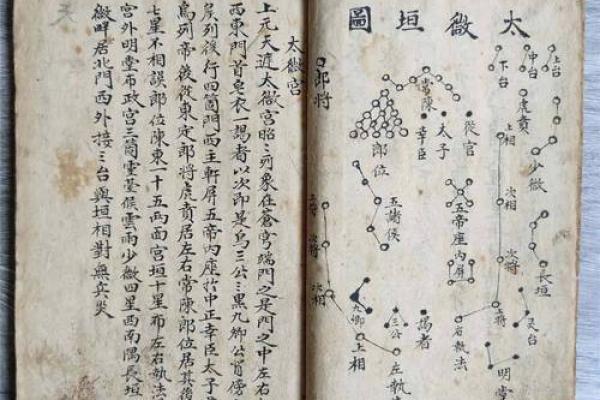 太微垣圖
上台
中台
下台
虎賁
少微
長垣
靈台
明堂
從官
太子
幸臣
常陳
郎位
郎將
上相
次相
次將
上將
五帝座
內屏
五諸侯
右執法
謁者
三公
九卿
左執
上相
次相
次將
上將
太微宮
上元天遅太微宮昭々列象在蒼穹端門之是門之中左右
西東門首皂衣一謁者以次即是烏三公三黑九卿公背傍
矦列後行四箇門西主軒屏五帝內座於中正幸臣太子
烏列帝後從東定郎將虎賁居左右常陳郎位居其後
七星不相誤郎位陳東一十五兩面宮垣十星布左右執法
宮外明堂布政宮三箇靈臺候雲雨少微四星西南隅長垣
微畔居北門西外接三台與垣相對無兵災